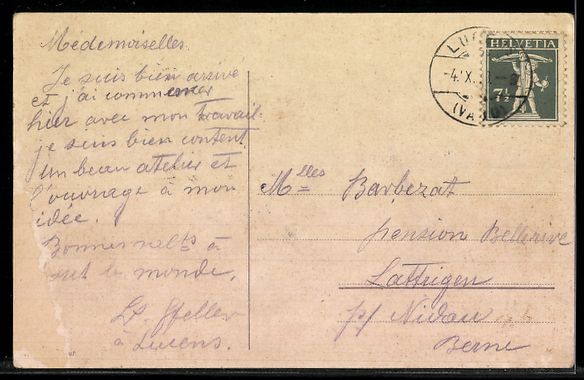 Médemoiselles.
Je suis bien arrivé
et j'ai commencer
hier avec mon travail.
je suis bien content
un beau atelier et
l'ouvrage à mon
idée.
Bonnes à
le monde.
à Lucens.
LUCENS
-4.X.
(VAUD)
HELVETIA
7½
Mlles Barbezat
pension Bellerive
Lattrigen
p/ Nidau
Berne